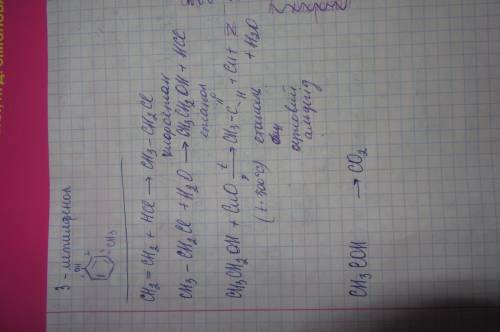 3 - метилфенол
OH
CH₃
CH₂=CH₂ + HCl → CH₃-CH₂Cl
хлорэтан
CH₃-CH₂Cl + H₂O → CH₃CH₂OH + HCl
этанол
CH₃CH₂OH + CuO →(t) CH₃-C-H + Cu + H₂O
(t-500°C) этаналь
уксусный
альдегид
CH₃COH → CO₂